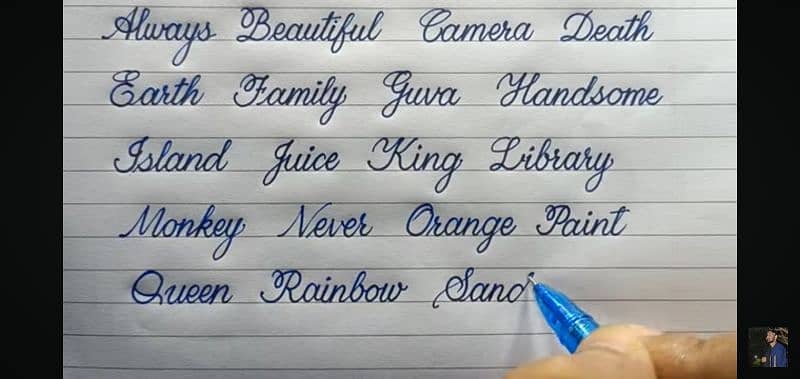 Always Beautiful Camera Death
Earth Family Guva Handsome
Island Juice King Library
Monkey Never Orange Paint
Queen Rainbow Sand